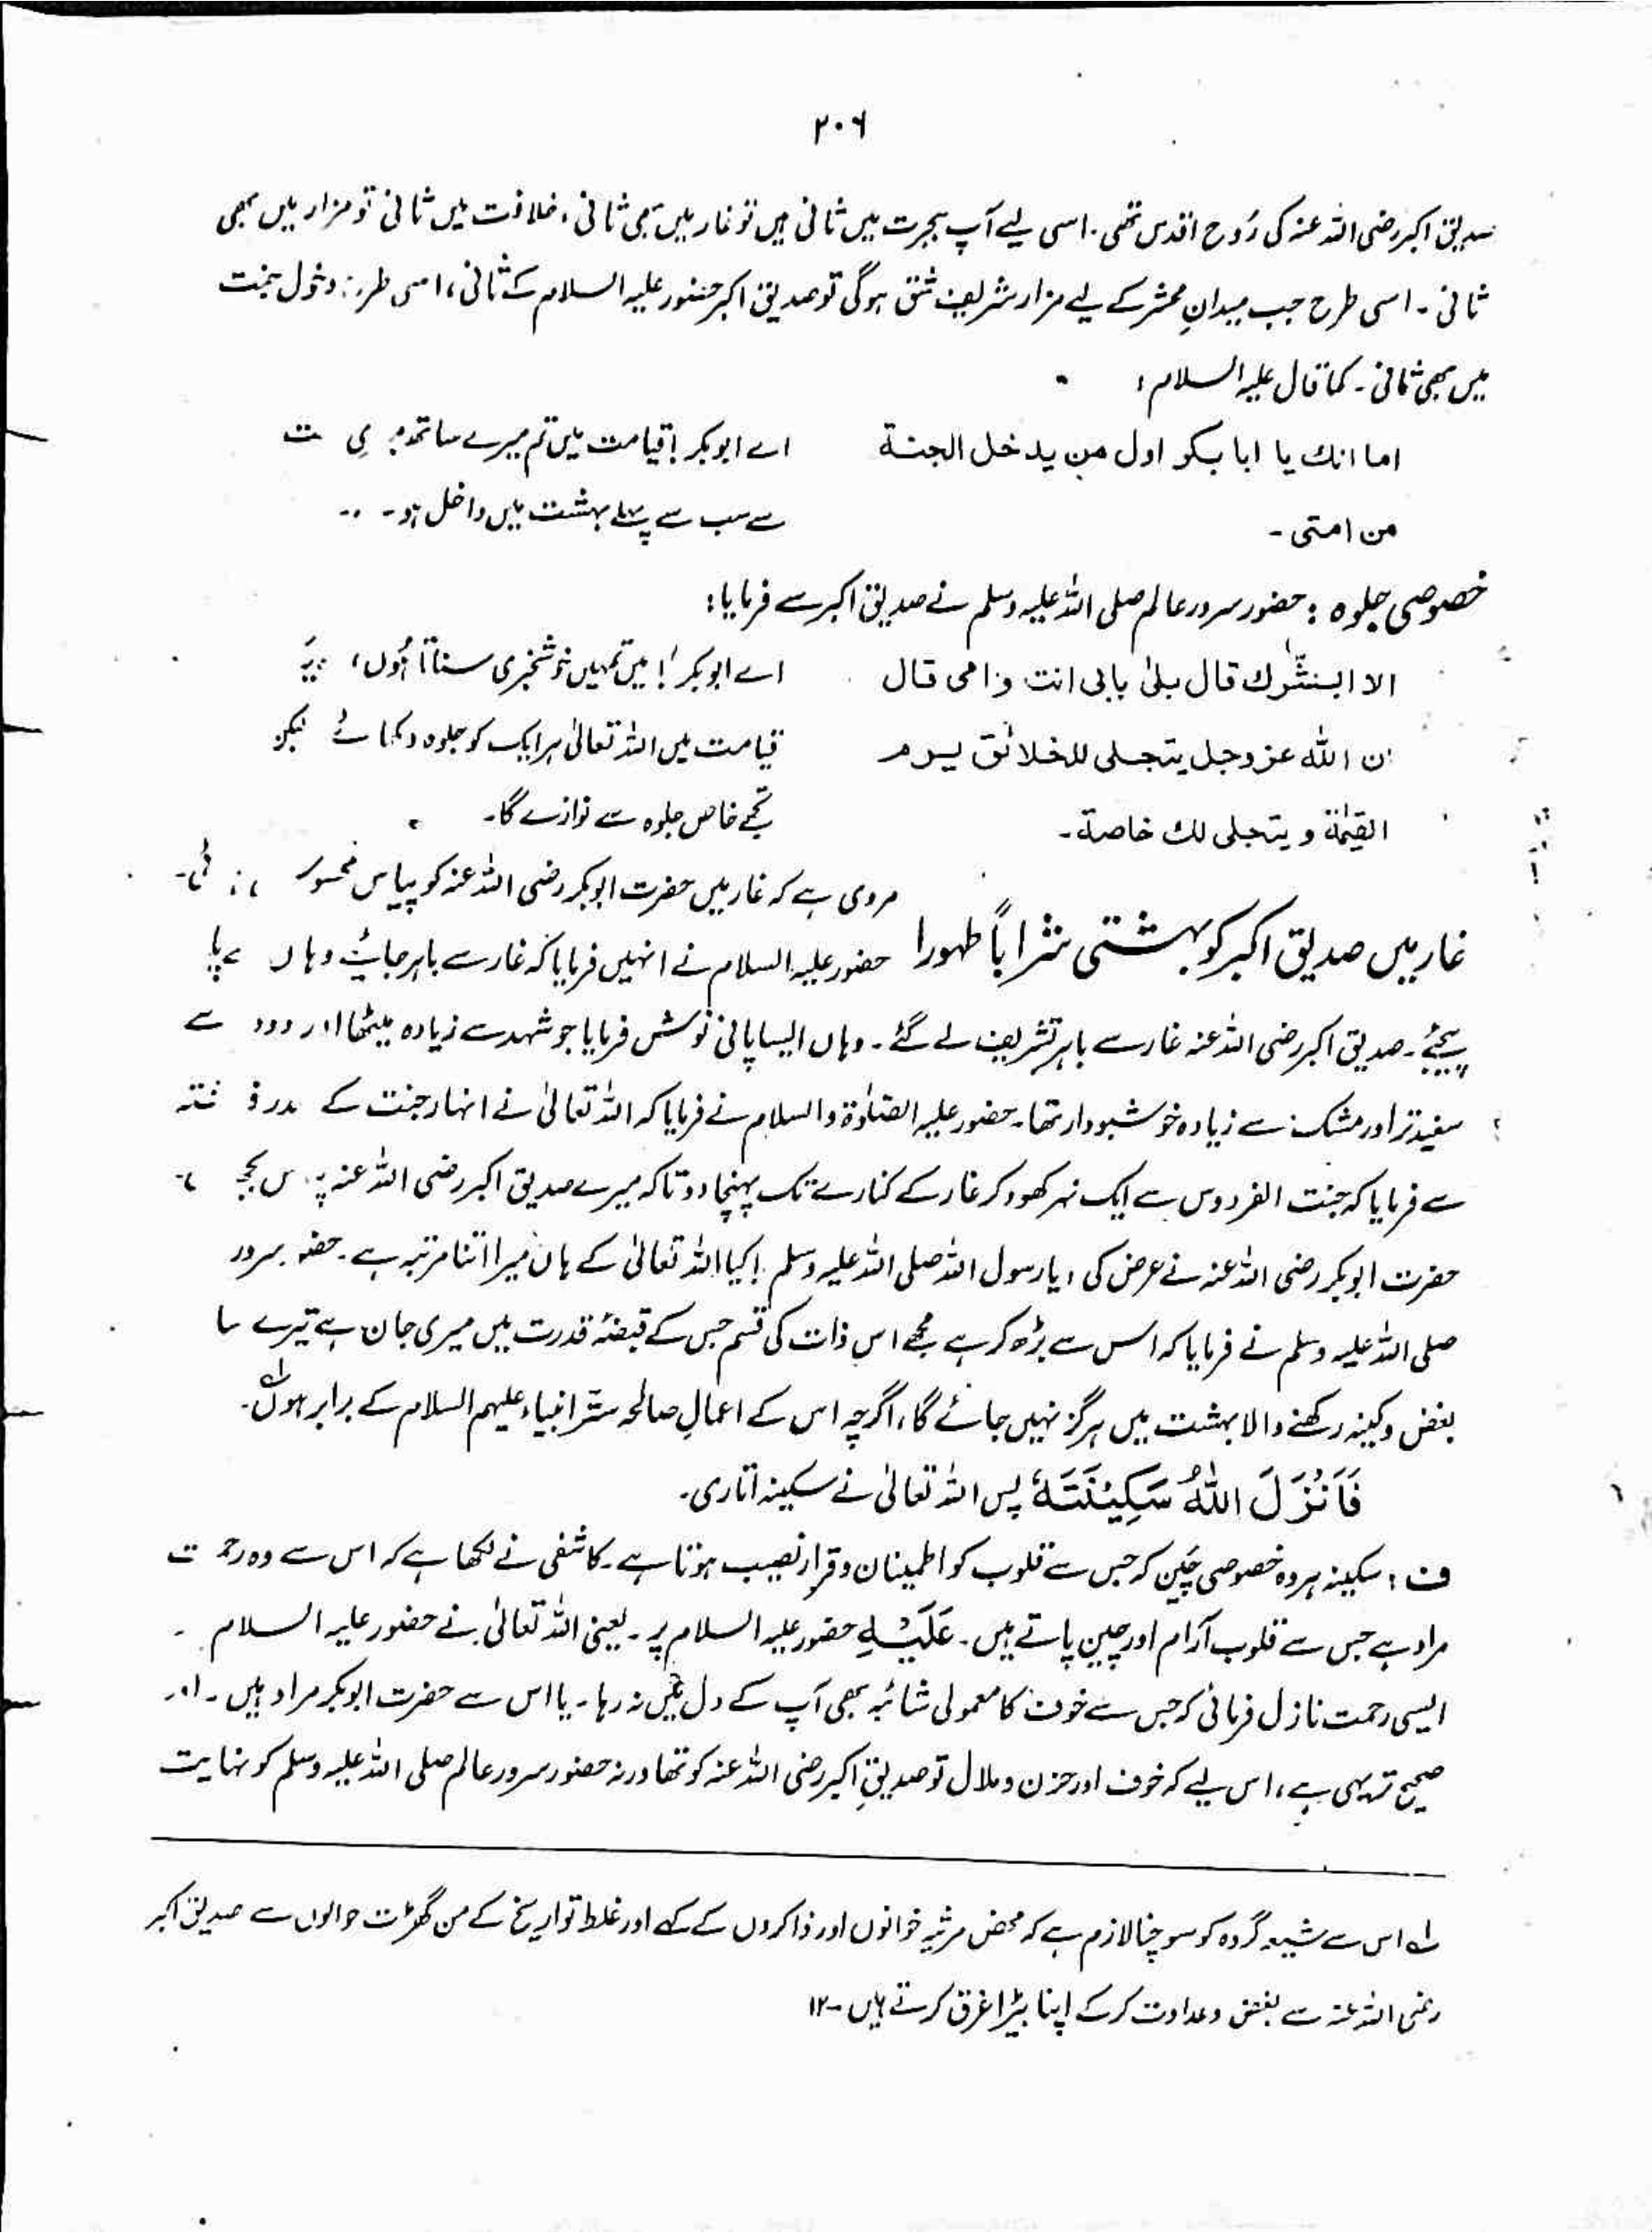 ۲۰۶
صدیق اکبر رضی اللہ عنہ کی رُوح اقدس تھی۔ اسی لیے آپ ہجرت میں ثانی ہیں تو غار میں بھی ثانی، خلافت میں ثانی تو مزار میں بھی
ثانی۔ اسی طرح جب میدانِ محشر کے لیے مزار شریف شق ہوگی تو صدیق اکبر حضور علیہ السلام کے ثانی، اسی طرح دخول جنت
میں بھی ثانی۔ کما قال علیہ السلام:
اما انك یا ابا بکر اول من یدخل الجنة
من امتی۔
اے ابوبکر! قیامت میں تم میرے ساتھ
سے سب سے پہلے بہشت میں داخل ہو
خصوصی جلوہ : حضور سرور عالم صلی اللہ علیہ وسلم نے صدیق اکبر سے فرمایا:
الا ابشرك قال بلیٰ بابی انت و امی قال
ان اللہ عزوجل یتجلی للخلائق یوم
القیٰمة و یتجلی لك خاصة۔
اے ابوبکر! میں تمہیں خوشخبری سناتا ہُوں،
قیامت میں اللہ تعالیٰ ہر ایک کو جلوہ دکھائے لیکن
تجھے خاص جلوہ سے نوازے گا۔
غار میں صدیق اکبر کو بہشتی شراباً طہورا
مروی ہے کہ غار میں حضرت ابوبکر رضی اللہ عنہ کو پیاس محسوس ئی۔
حضور علیہ السلام نے انہیں فرمایا کہ غار سے باہر جائیے وہاں سے پا
پیجئے۔ صدیق اکبر رضی اللہ عنہ غار سے باہر تشریف لے گئے۔ وہاں ایسا پانی نوش فرمایا جو شہد سے زیادہ میٹھا اور دودھ سے
سفید تر اور مشک سے زیادہ خوشبودار تھا۔ حضور علیہ الصلوٰۃ والسلام نے فرمایا کہ اللہ تعالیٰ نے انہار جنت کے
سے فرمایا کہ جنت الفردوس سے ایک نہر کھود کر غار کے کنارے تک پہنچا دو تاکہ میرے صدیق اکبر رضی اللہ عنہ
حضرت ابوبکر رضی اللہ عنہ نے عرض کی، یا رسول اللہ صلی اللہ علیہ وسلم! کیا اللہ تعالیٰ کے ہاں میرا اتنا مرتبہ ہے۔ حضور سرور
صلی اللہ علیہ وسلم نے فرمایا کہ اس سے بڑھ کر ہے مجھے اس ذات کی قسم جس کے قبضۂ قدرت میں میری جان ہے تیرے سا
بغض و کینہ رکھنے والا بہشت میں ہرگز نہیں جائے گا، اگرچہ اس کے اعمالِ صالحہ ستّر انبیاء علیہم السلام کے برابر ہوں لہ۔
فَاَنْزَلَ اللّٰهُ سَكِيْنَتَهٗ پس اللہ تعالیٰ نے سکینہ اتاری۔
ف : سکینہ ہر وہ خصوصی چَین کہ جس سے قلوب کو اطمینان و قرار نصیب ہوتا ہے۔ کاشفی نے لکھا ہے کہ اس سے وہ رحمت
مراد ہے جس سے قلوب آرام اور چین پاتے ہیں۔ عَلَيْهِ حضور علیہ السلام پر۔ یعنی اللہ تعالیٰ نے حضور علیہ السلام
ایسی رحمت نازل فرمائی کہ جس سے خوف کا معمولی شائبہ بھی آپ کے دل میں نہ رہا۔ یا اس سے حضرت ابوبکر مراد ہیں۔ اور
صحیح تر یہی ہے، اس لیے کہ خوف اور حزن و ملال تو صدیقِ اکبر رضی اللہ عنہ کو تھا ورنہ حضور سرور عالم صلی اللہ علیہ وسلم کو نہایت
لہ اس سے شیعہ گروہ کو سوچنا لازم ہے کہ محض مرثیہ خوانوں اور ذاکروں کے کہے اور غلط تواریخ کے من گھڑت حوالوں سے صدیق اکبر
رضی اللہ عنہ سے بغض و عداوت کر کے اپنا بیڑا غرق کرتے ہیں ۔۱۲